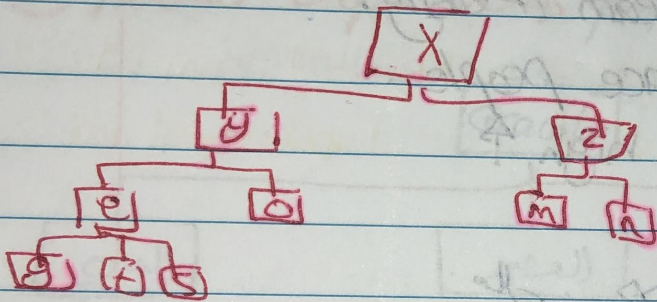 X
y z
e o m n
g t s